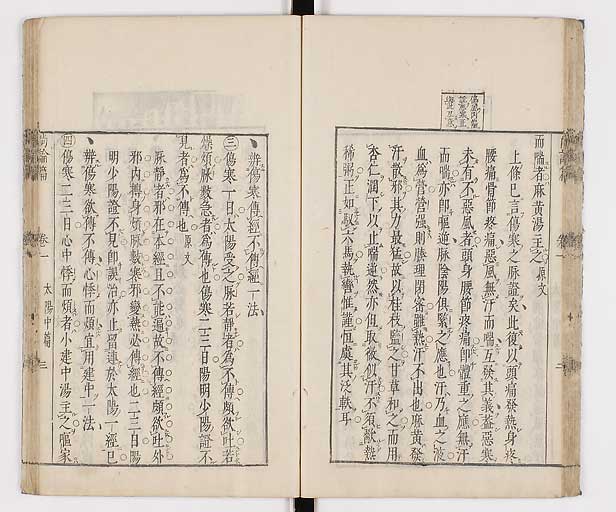 而喘者麻黄湯主之原文
上條已言傷寒之脉證矣此復以頭痛發熱身疼
腰痛骨節疼痛惡風無汗而喘互發其義葢惡寒
未有不惡風者頭身腰節疼痛即體重之應無汗
而喘亦即嘔逆脉陰陽俱緊之應也汗乃血之液
血為營營强則腠理閉密雖熱汗不出也麻黄發
汗散邪其力最猛故以桂枝監之甘草和之而用
杏仁潤下以止喘逆然亦但取微似汗不須歠熱
稀粥正如馭六馬執轡惟謹恒虞其泛軼耳
辨傷寒傳經不傳經一法
三傷寒一日太陽受之脉若靜者為不傳頗欲吐若
燥煩脉數急者為傳也傷寒二三日陽明少陽證不
見者為不傳也原文
脉靜者邪在本經且不能遍故不傳經頗欲吐外
邪内轉身煩脉數寒邪變熱必傳經也二三日陽
明少陽證不見即誤治亦止留連於太陽一經已
辨傷寒欲傳不傳心悸而煩宜用建中一法
四傷寒二三日心中悸而煩者小建中湯主之嘔家
卷一
太陽中篇
三